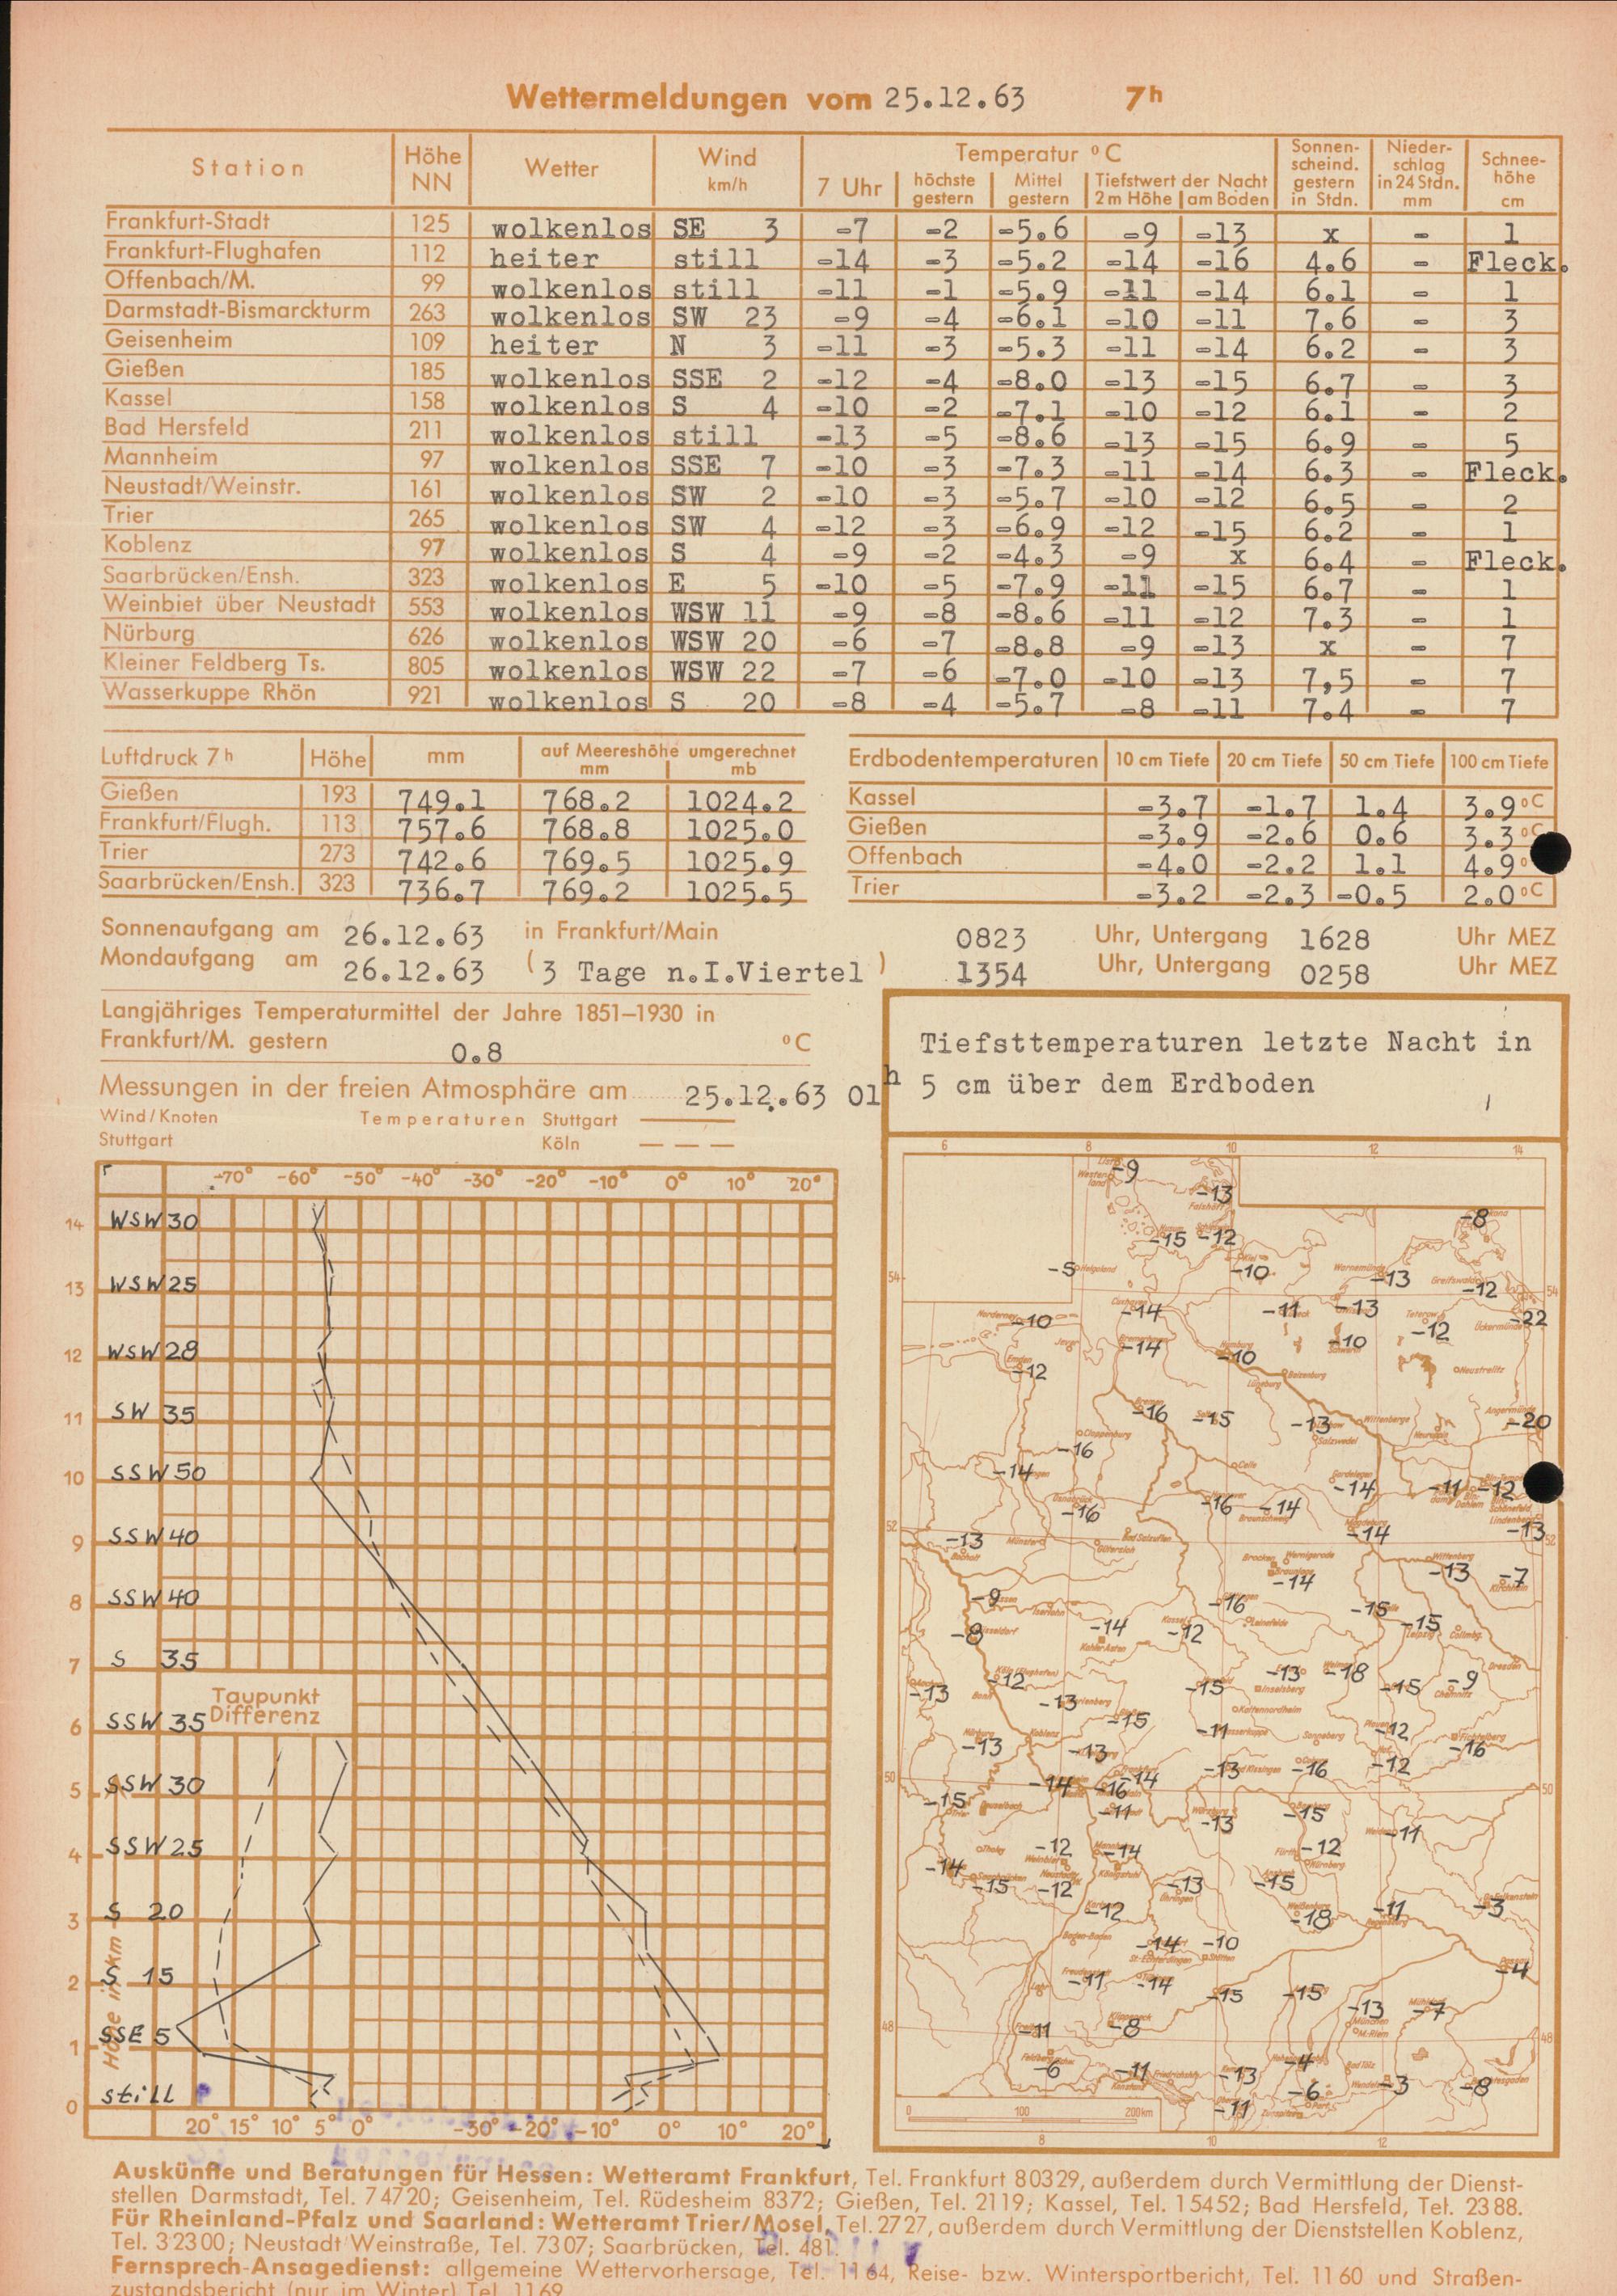 Wettermeldungen vom 25.12.63 7h
Station Höhe NN Wetter Wind km/h Temperatur °C Sonnenscheind. gestern in Stdn. Niederschlag in 24 Stdn. mm Schneehöhe cm
7 Uhr höchste gestern Mittel gestern Tiefstwert der Nacht 2 m Höhe am Boden
Frankfurt-Stadt 125 wolkenlos SE 3 -7 -2 -5.6 -9 -13 x - 1
Frankfurt-Flughafen 112 heiter still -14 -3 -5.2 -14 -16 4.6 - Fleck.
Offenbach/M. 99 wolkenlos still -11 -1 -5.9 -11 -14 6.1 - 1
Darmstadt-Bismarckturm 263 wolkenlos SW 23 -9 -4 -6.1 -10 -11 7.6 - 3
Geisenheim 109 heiter N 3 -11 -3 -5.3 -11 -14 6.2 - 3
Gießen 185 wolkenlos SSE 2 -12 -4 -8.0 -13 -15 6.7 - 3
Kassel 158 wolkenlos S 4 -10 -2 -7.1 -10 -12 6.1 - 2
Bad Hersfeld 211 wolkenlos still -13 -5 -8.6 -13 -15 6.9 - 5
Mannheim 97 wolkenlos SSE 7 -10 -3 -7.3 -11 -14 6.3 - Fleck.
Neustadt/Weinstr. 161 wolkenlos SW 2 -10 -3 -5.7 -10 -12 6.5 - 2
Trier 265 wolkenlos SW 4 -12 -3 -6.9 -12 -15 6.2 - 1
Koblenz 97 wolkenlos S 4 -9 -2 -4.3 -9 x 6.4 - Fleck.
Saarbrücken/Ensh. 323 wolkenlos E 5 -10 -5 -7.9 -11 -15 6.7 - 1
Weinbiet über Neustadt 553 wolkenlos WSW 11 -9 -8 -8.6 -11 -12 7.3 - 1
Nürburg 626 wolkenlos WSW 20 -6 -7 -8.8 -9 -13 x - 7
Kleiner Feldberg Ts. 805 wolkenlos WSW 22 -7 -6 -7.0 -10 -13 7,5 - 7
Wasserkuppe Rhön 921 wolkenlos S 20 -8 -4 -5.7 -8 -11 7.4 - 7
Luftdruck 7h Höhe mm auf Meereshöhe umgerechnet mm mb
Gießen 193 749.1 768.2 1024.2
Frankfurt/Flugh. 113 757.6 768.8 1025.0
Trier 273 742.6 769.5 1025.9
Saarbrücken/Ensh. 323 736.7 769.2 1025.5
Erdbodentemperaturen 10 cm Tiefe 20 cm Tiefe 50 cm Tiefe 100 cm Tiefe
Kassel -3.7 -1.7 1.4 3.9 °C
Gießen -3.9 -2.6 0.6 3.3 °C
Offenbach -4.0 -2.2 1.1 4.9 °
Trier -3.2 -2.3 -0.5 2.0 °C
Sonnenaufgang am 26.12.63 in Frankfurt/Main 0823 Uhr, Untergang 1628 Uhr MEZ
Mondaufgang am 26.12.63 (3 Tage n.I.Viertel) 1354 Uhr, Untergang 0258 Uhr MEZ
Langjähriges Temperaturmittel der Jahre 1851–1930 in
Frankfurt/M. gestern 0.8 °C
Messungen in der freien Atmosphäre am 25.12.63 01h
Wind/Knoten Temperaturen Stuttgart
Stuttgart Köln
-70° -60° -50° -40° -30° -20° -10° 0° 10° 20°
14 WSW 30
13 WSW 25
12 WSW 28
11 SW 35
10 SSW 50
9 SSW 40
8 SSW 40
7 S 35
Taupunkt
Differenz
6 SSW 35
5 SSW 30
4 SSW 25
3 S 20
2 S 15
1 SSE 5
0 still
Höhe in km
20° 15° 10° 5° 0° -30° -20° -10° 0° 10° 20°
Tiefsttemperaturen letzte Nacht in
5 cm über dem Erdboden
6 8 10 12 14
-9
-13
-8
-15 -12
-5 Helgoland -10 Warnemünde -13 Greifswald -12
54 54
-10 -14 -11 -13 -12 -22
-14 -10 -10
-12 Neustrelitz
Lüneburg Boizenburg
-16 -15 -13 Wittenberge Angermünde -20
Cloppenburg -16 Salzwedel
-14 Celle Gardelegen -14 -11 -12
-16 -16 -14 Braunschweig -14 Lindenberg -13
52 52
-13 Münster Bad Salzuflen Gütersloh
Brocken Wernigerode Wittenberg -13 -7
-14
-9 Iserlohn -16 -15
-8 -14 Kassel -12 Leinefelde Leipzig -15 Collmbg.
Kahler Asten
-12 -13 -18 Dresden
-13 Bonn -13 -15 Inselsberg -15 -9 Chemnitz
-15 Kaltennordheim
Nürburg -13 Koblenz -13 -11 Sonneberg -12 -16
50 50
-14 -16 -14 -13 Bad Kissingen -16 -12
-15 -11 Würzburg -13 -15 -11
Tholey -12 Mannheim -14 -12 Nürnberg
-14 -15 -12 Königstuhl -13 Öhringen -15
-12 -18 -11 -3
Baden-Baden -14 -10 -4
-11 -14 -15 -15 -13 -7
48 48
-11 -8 München M.-Riem
Feldberg -6 -11 -13 -4 Bad Tölz -3 -8
Konstanz -11 -6
0 100 200km
8 10 12
Auskünfte und Beratungen für Hessen: Wetteramt Frankfurt, Tel. Frankfurt 80329, außerdem durch Vermittlung der Dienst-
stellen Darmstadt, Tel. 74720; Geisenheim, Tel. Rüdesheim 8372; Gießen, Tel. 2119; Kassel, Tel. 15452; Bad Hersfeld, Tel. 2388.
Für Rheinland-Pfalz und Saarland: Wetteramt Trier/Mosel, Tel. 2727, außerdem durch Vermittlung der Dienststellen Koblenz,
Tel. 32300; Neustadt Weinstraße, Tel. 7307; Saarbrücken, Tel. 481.
Fernsprech-Ansagedienst: allgemeine Wettervorhersage, Tel. 1164, Reise- bzw. Wintersportbericht, Tel. 1160 und Straßen-
zustandsbericht (nur im Winter) Tel. 1169